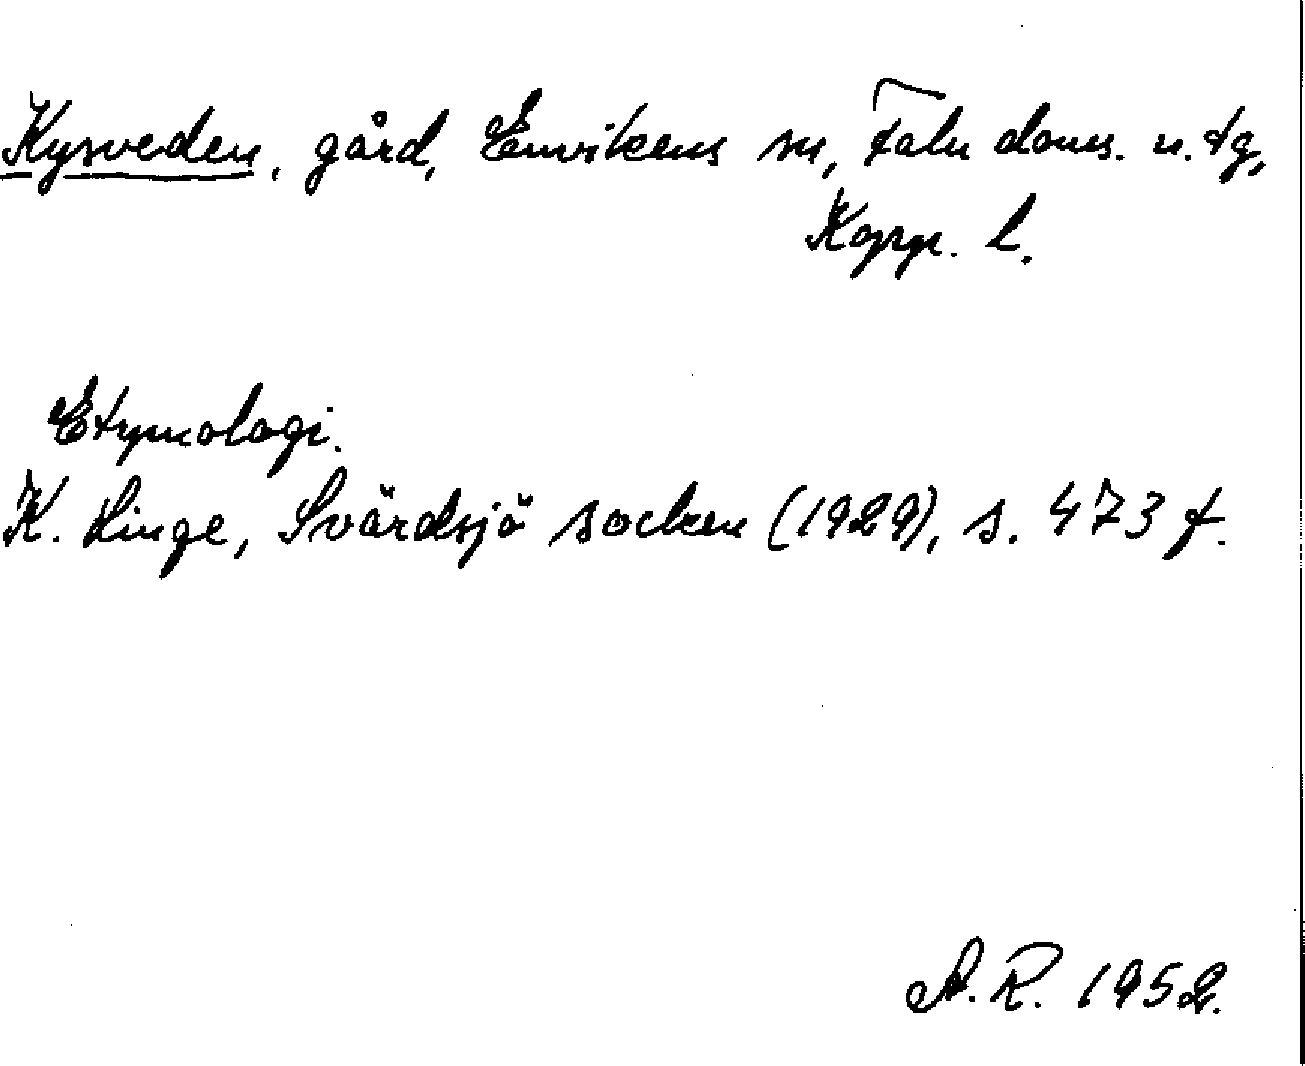 Kysveden, gård, Envikens sn, Falu doms. n. tg,
Kopp. l.
Etymologi.
K. Linge, Svärdsjö socken (1929), s. 473 f.
A.R. 1952.